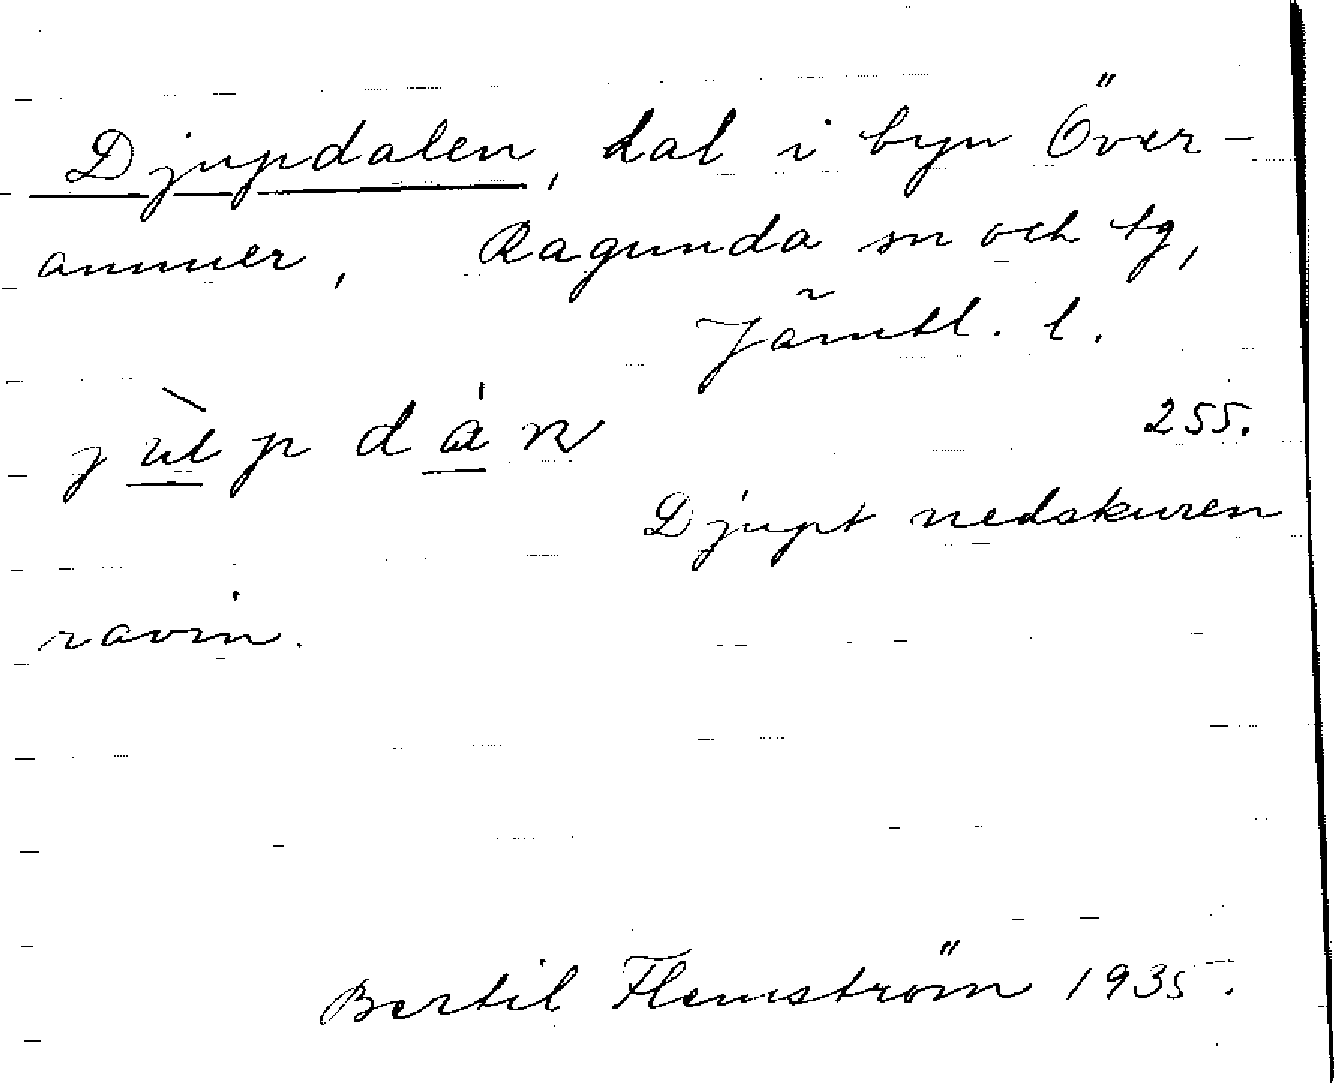 Djupdalen, dal i byn Över-
ammer, Ragunda sn och tg,
Jämtl. l.
255.
Djupt nedskuren
ravin.
Bertil Flemström 1935.